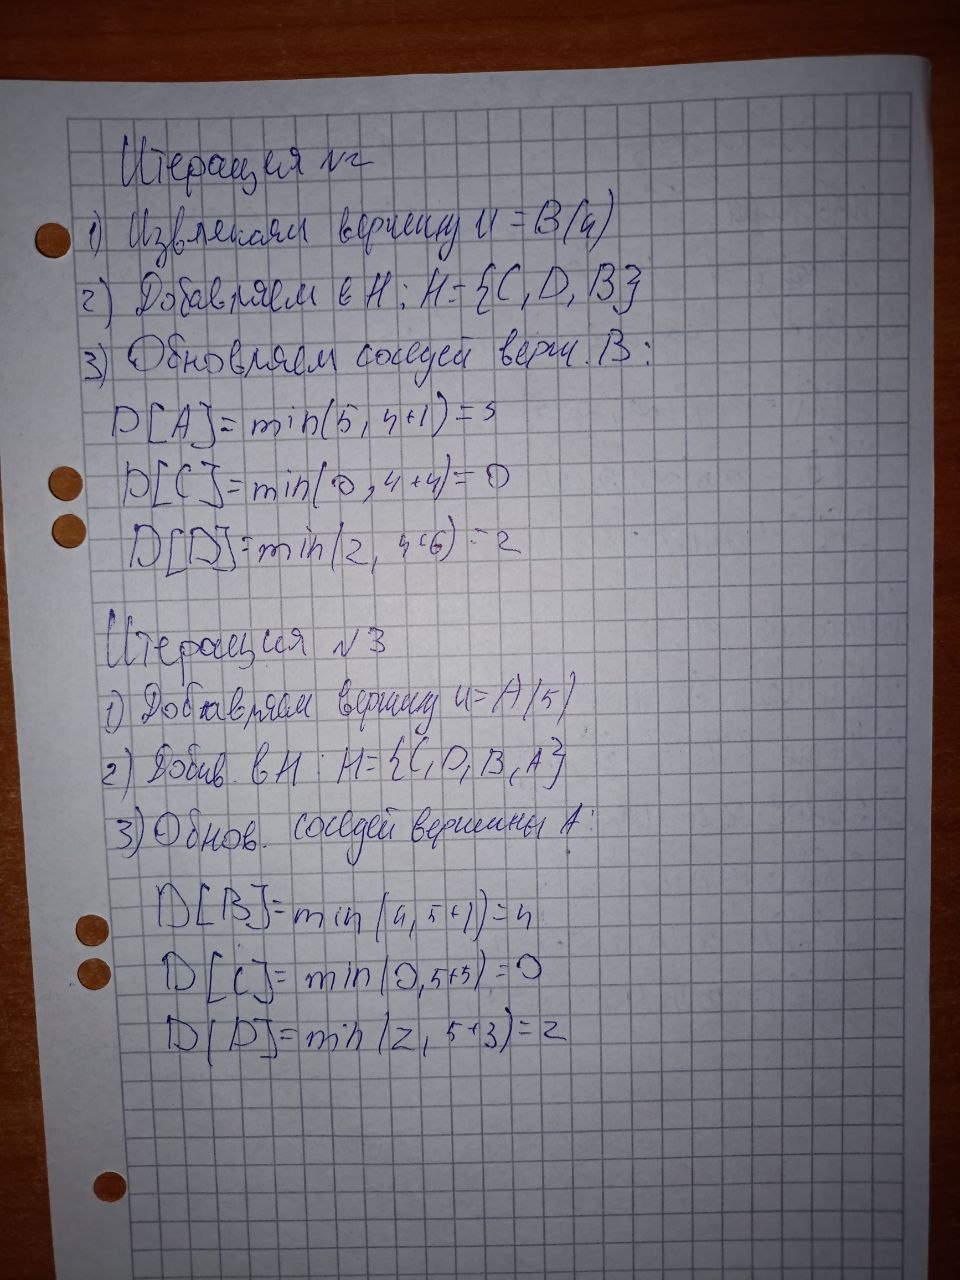 Итерация №2
1) Извлекаем вершину u = B(4)
2) Добавляем в H: H={C, D, B}
3) Обновляем соседей верш. B:
D[A]=min(5, 4+1)=5
D[C]=min(0, 4+4)=0
D[D]=min(2, 4+6)=2
Итерация №3
1) Добавляем вершину u=A(5)
2) Добав. в H: H={C, D, B, A}
3) Обнов. соседей вершины A:
D[B]=min(4, 5+1)=4
D[C]=min(0, 5+5)=0
D[D]=min(2, 5+3)=2